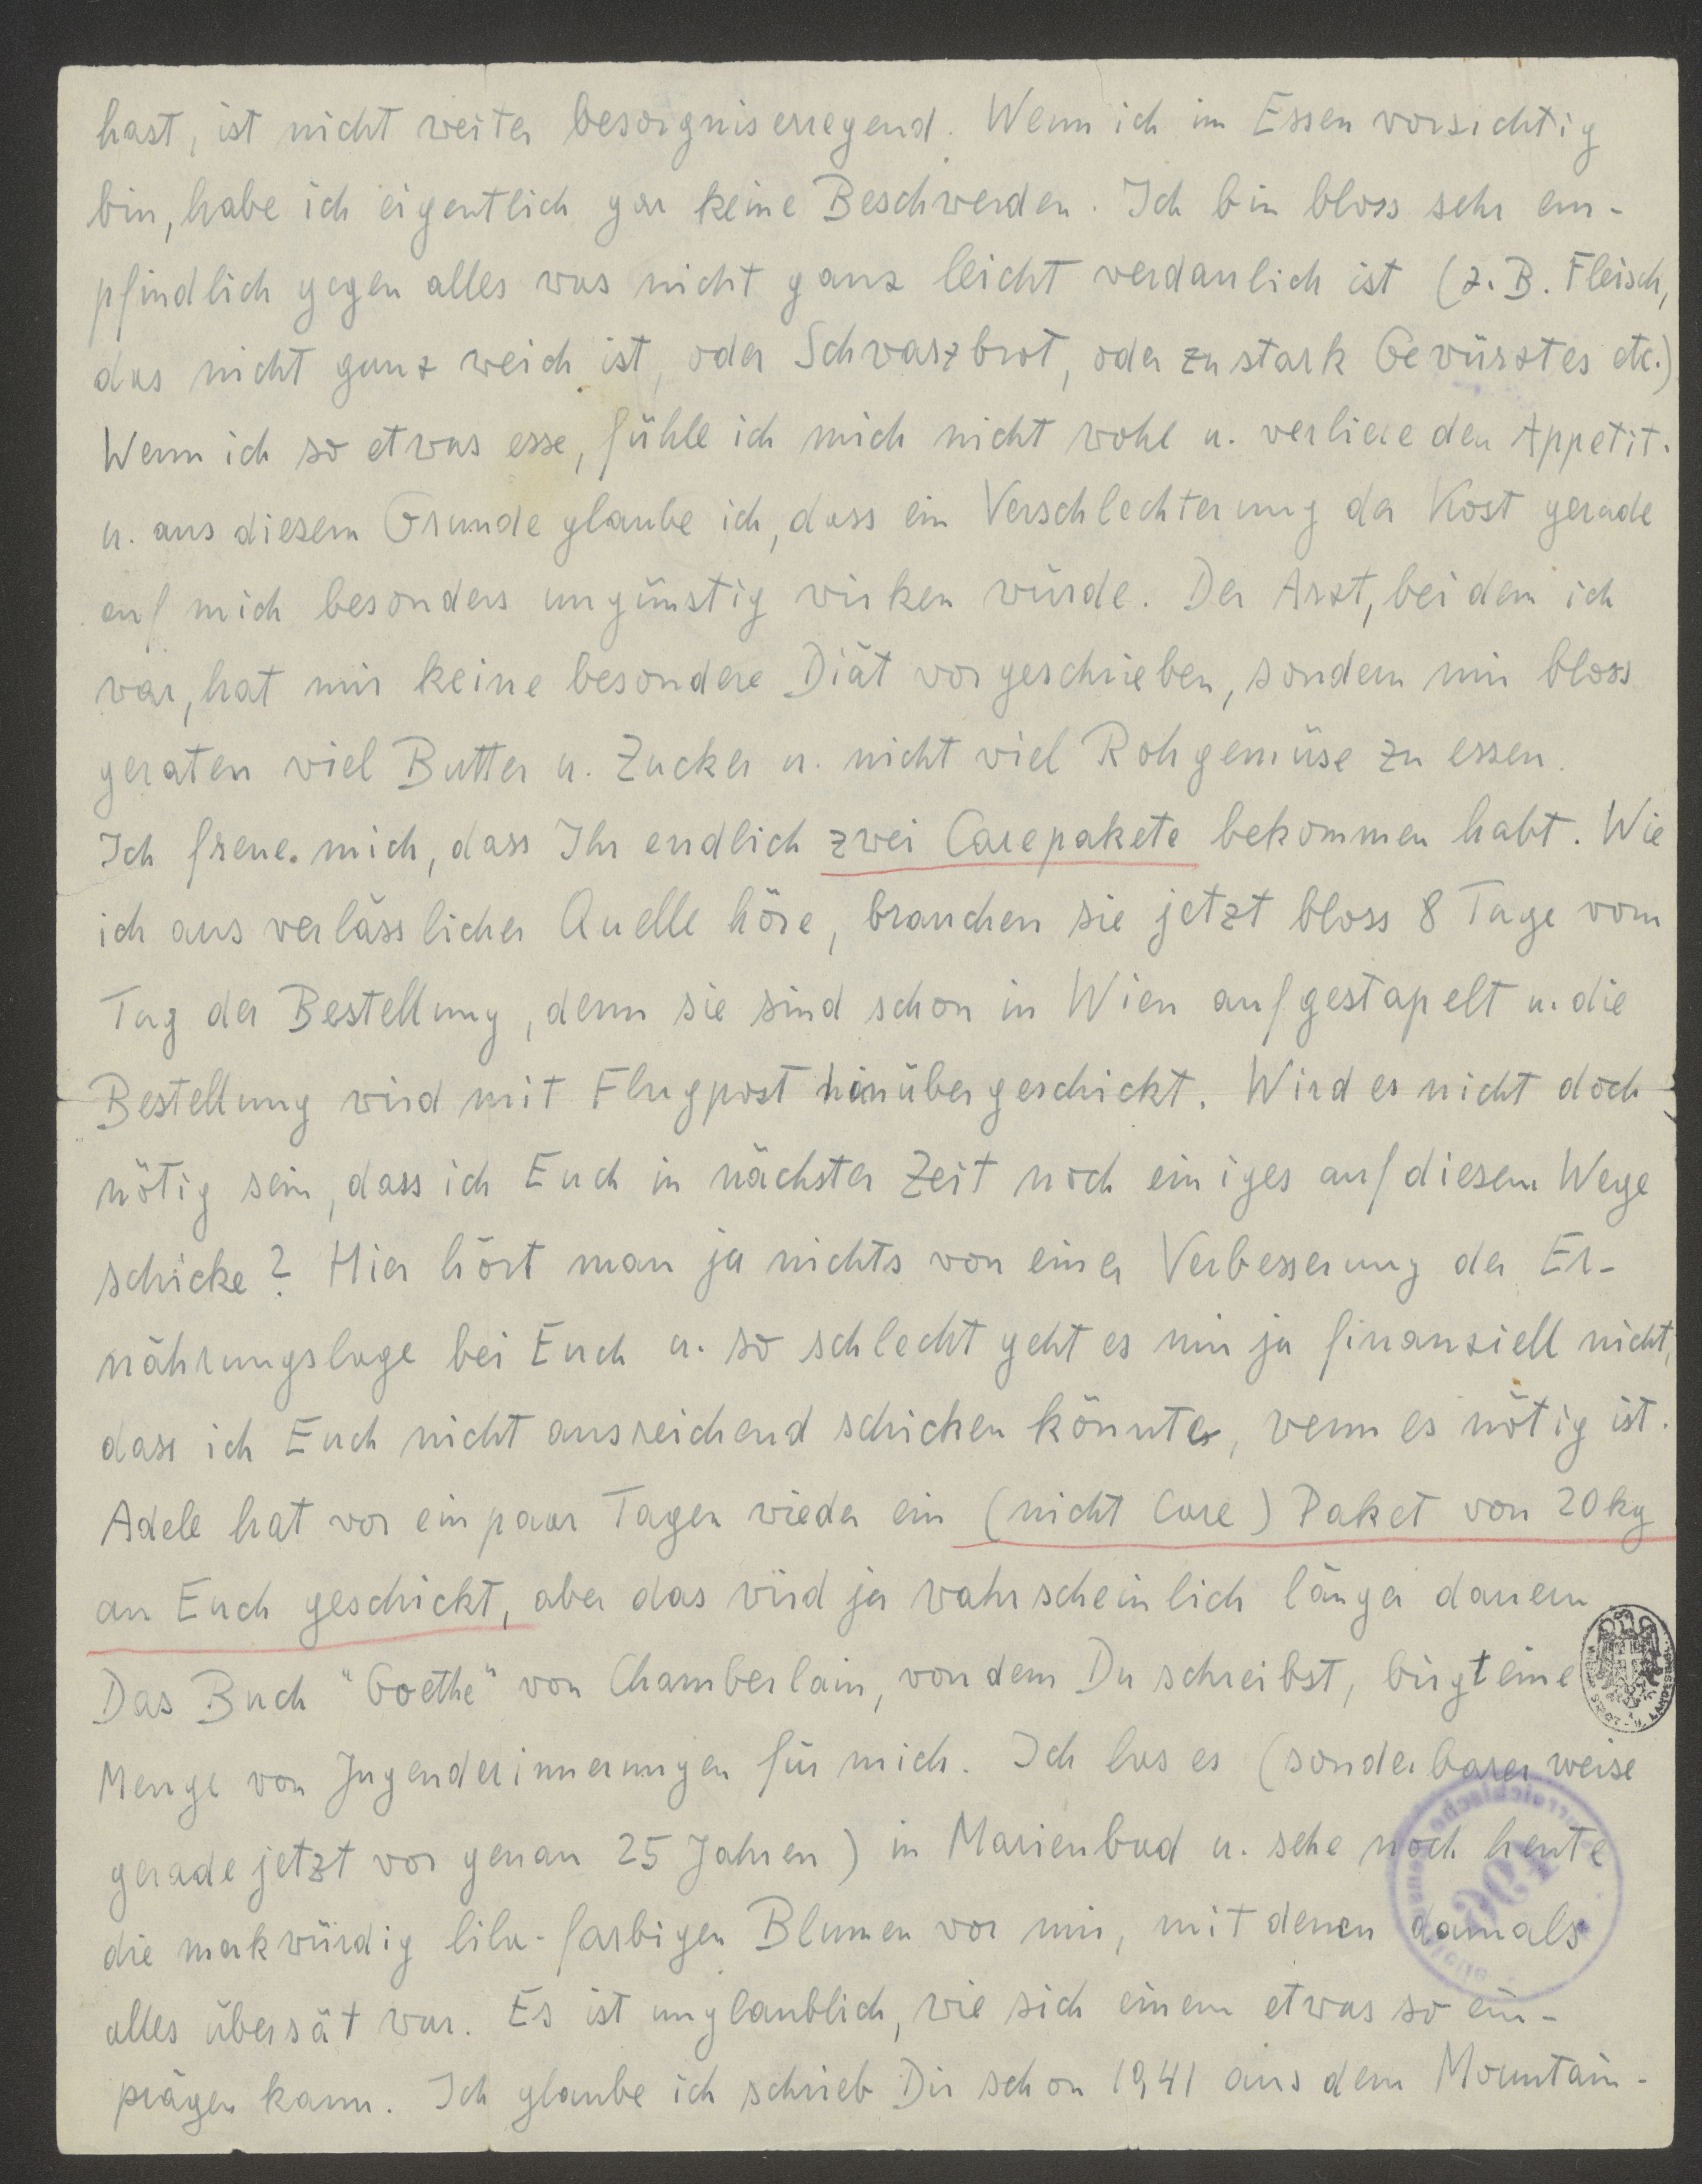 hast, ist nicht weiter besorgniserregend. Wenn ich im Essen vorsichtig
bin, habe ich eigentlich gar keine Beschwerden. Ich bin bloss sehr em-
pfindlich gegen alles was nicht ganz leicht verdaulich ist (z.B. Fleisch,
das nicht ganz weich ist, oder Schwarzbrot, oder zu stark Gewürztes etc.)
Wenn ich so etwas esse, fühle ich mich nicht wohl u. verliere den Appetit.
u. aus diesem Grunde glaube ich, dass ein Verschlechterung der Kost gerade
auf mich besonders ungünstig wirken würde. Der Arzt, bei dem ich
war, hat mir keine besondere Diät vorgeschrieben, sondern mir bloss
geraten viel Butter u. Zucker u. nicht viel Rohgemüse zu essen.
Ich freue mich, dass Ihr endlich zwei Carepakete bekommen habt. Wie
ich aus verlässlicher Quelle höre, brauchen sie jetzt bloss 8 Tage vom
Tag der Bestellung, denn sie sind schon in Wien aufgestapelt u. die
Bestellung wird mit Flugpost hinübergeschickt. Wird es nicht doch
nötig sein, dass ich Euch in nächster Zeit noch einiges auf diesem Wege
schicke? Hier hört man ja nichts von einer Verbesserung der Er-
nährungslage bei Euch u. so schlecht geht es mir ja finanziell nicht,
dass ich Euch nicht ausreichend schicken könnte, wenn es nötig ist.
Adele hat vor ein paar Tagen wieder ein (nicht Care) Paket von 20 kg
an Euch geschickt, aber das wird ja wahrscheinlich länger dauern
Das Buch "Goethe" von Chamberlain, von dem Du schreibst, birgt eine
Menge von Jugenderinnerungen für mich. Ich las es (sonderbarerweise
gerade jetzt vor genau 25 Jahren) in Marienbad u. sehe noch heute
die merkwürdig lila-farbigen Blumen vor mir, mit denen damals
alles übersät war. Es ist unglaublich, wie sich einem etwas so ein-
prägen kann. Ich glaube ich schrieb Dir schon 1941 aus dem Mountain-